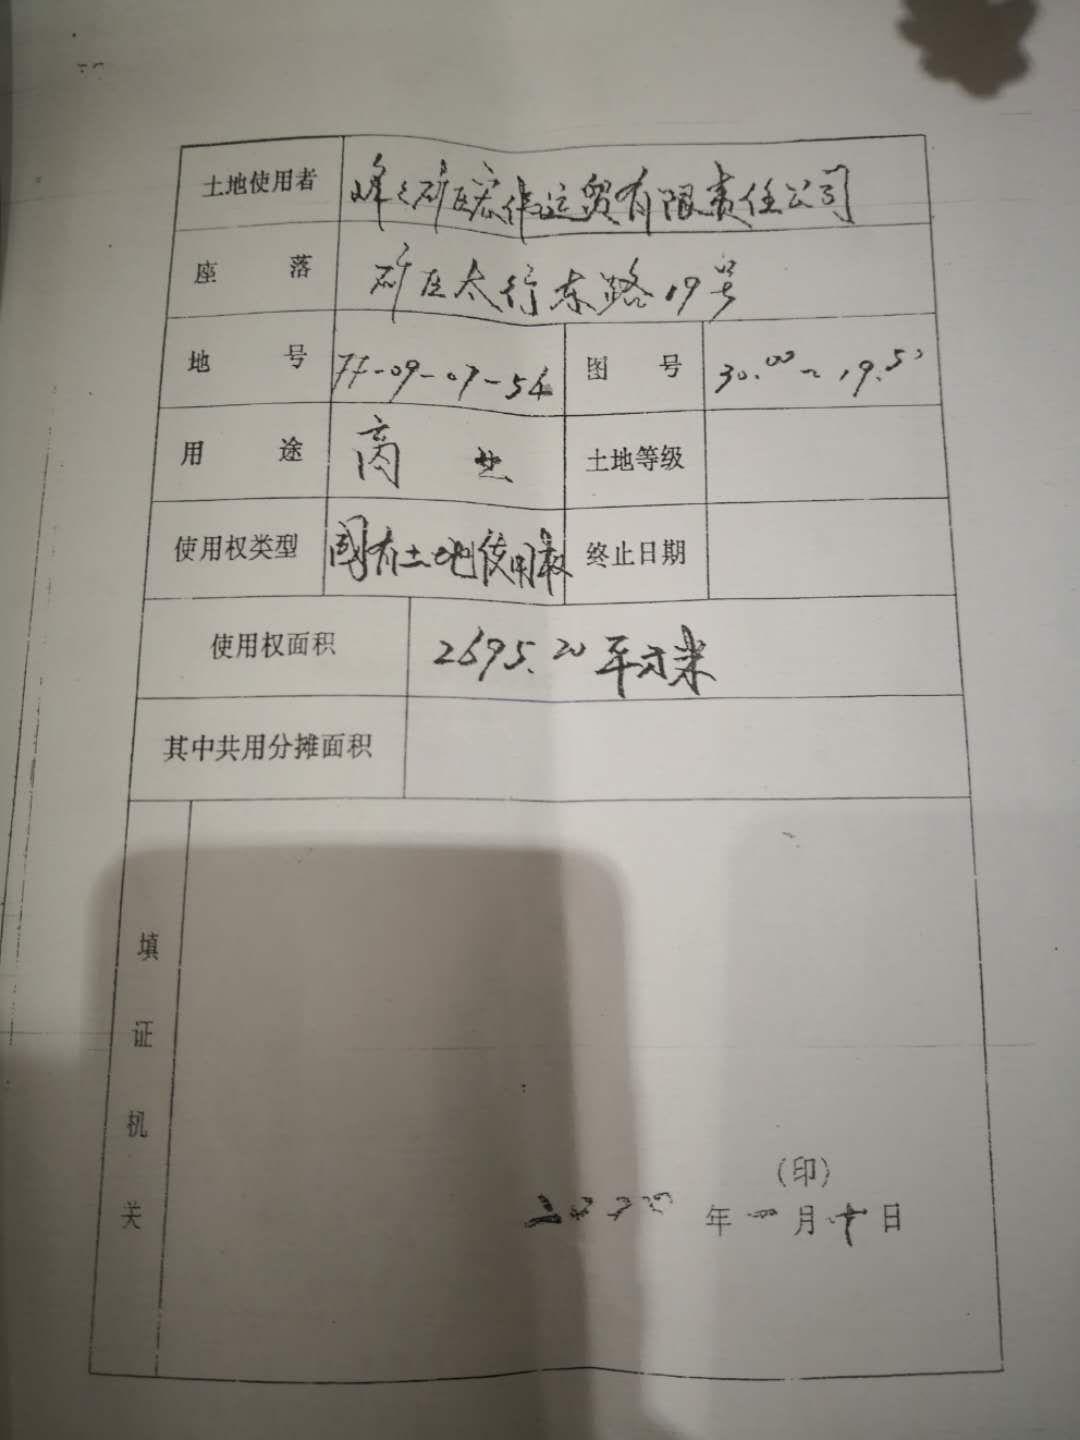 土地使用者 峰之矿区宏伟运贸有限责任公司
座落 矿区太行东路19号
地号 77-09-07-54 图号 30.00~19.50
用途 商业 土地等级
使用权类型 国有土地使用权 终止日期
使用权面积 2695.20平方米
其中共用分摊面积
填证机关
(印)
年 月十日